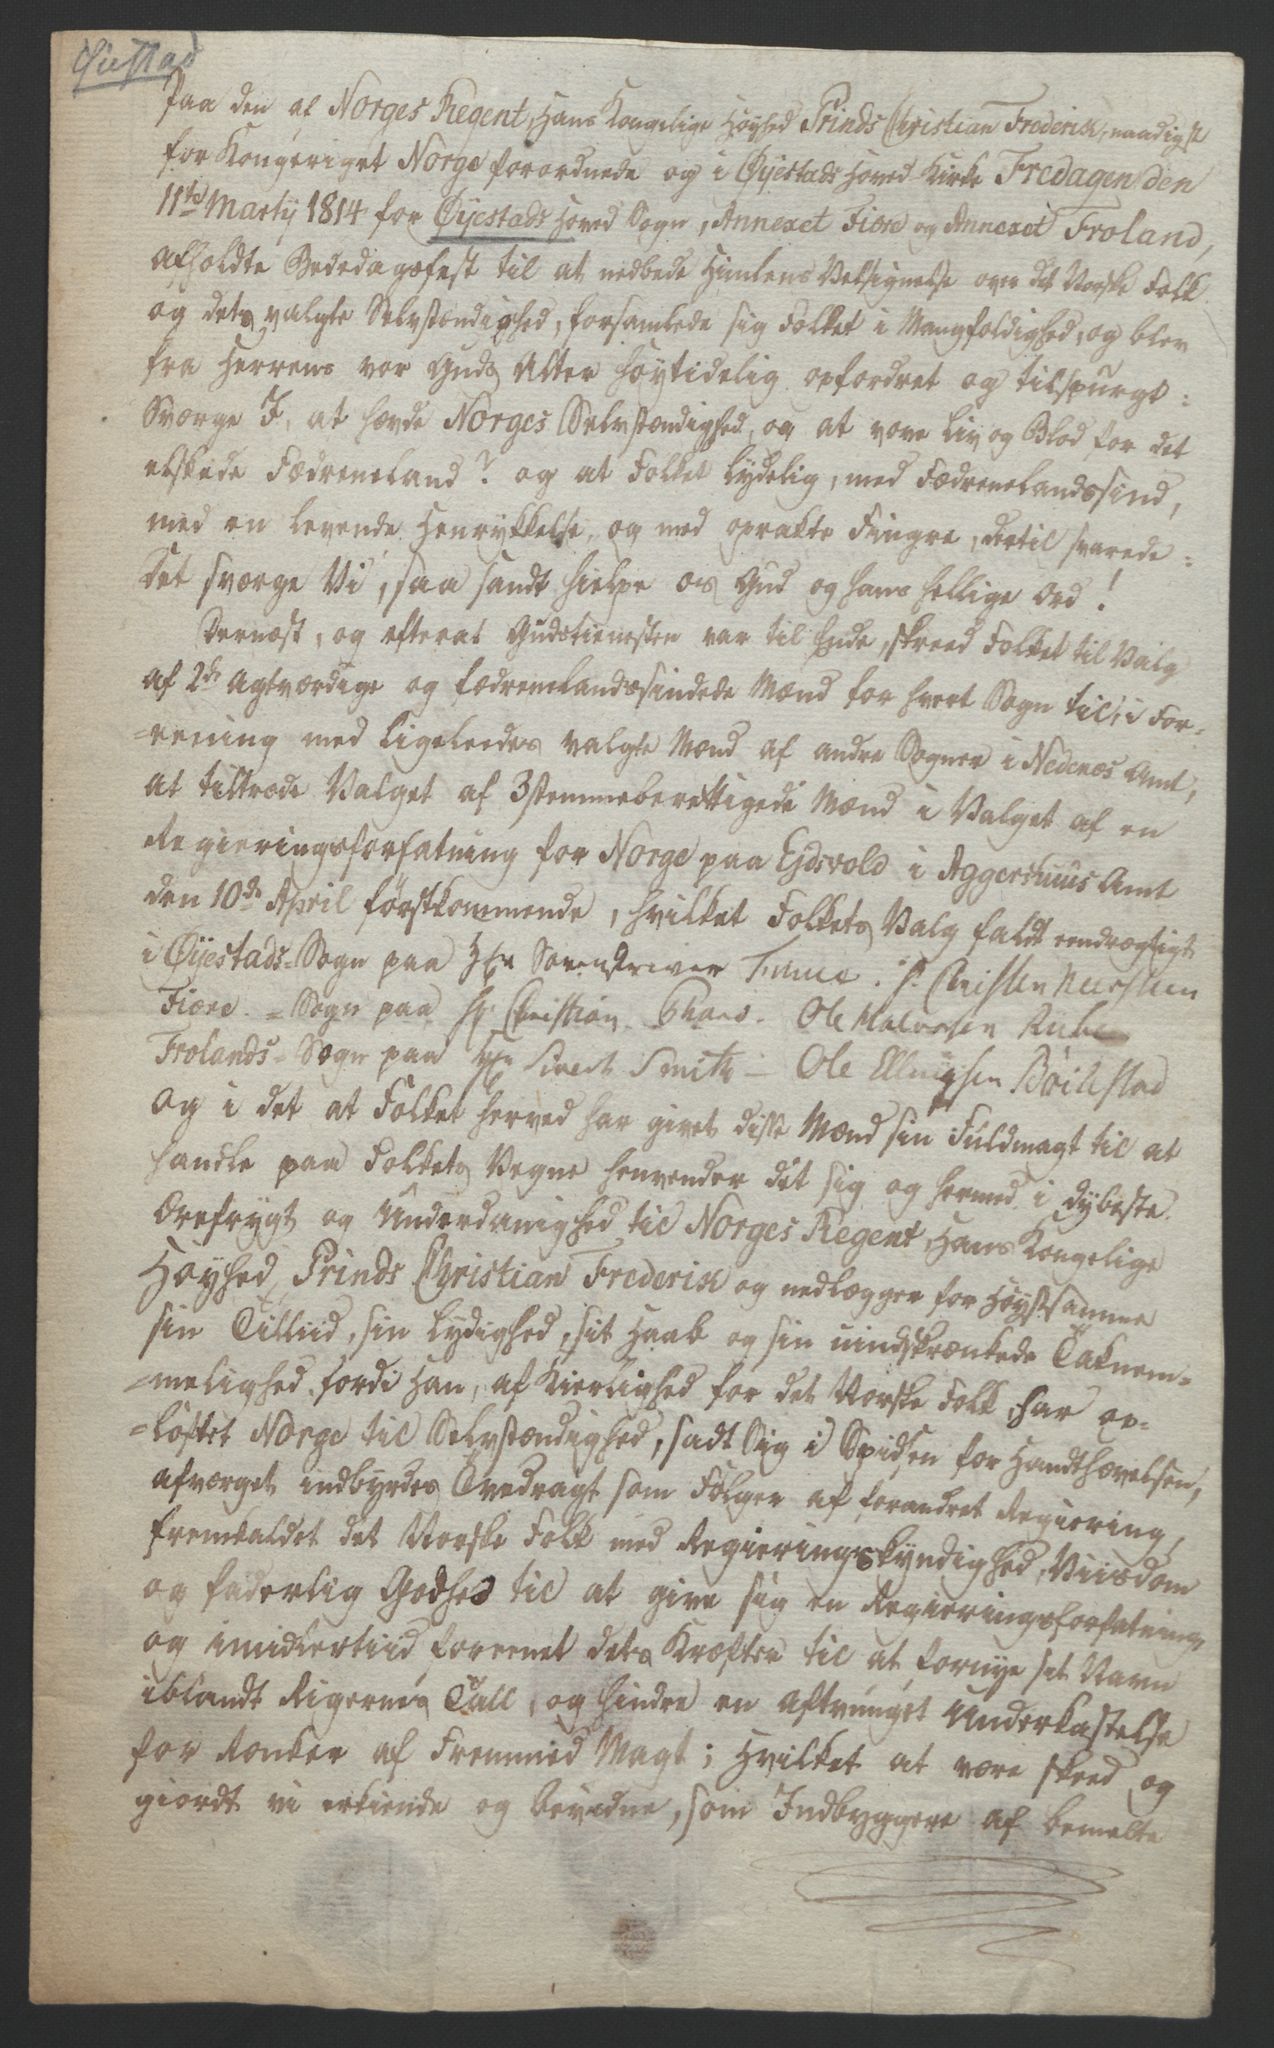 Øiestad
Paa den af Norges Regent, Hans Kongelige Høyhed Prinds Christian Frederik, naadigst
for Kongeriget Norge forordnede og i Øyestads Hoved-Kirke Fredagen den
11te Martÿ 1814 for Øyestads Hoved Sogn, Annexet Fiære og Annexet Froland,
afholdte Bededagsfest til at nedbede Himlens Velsignelse over det Norske Folk
og dets valgte Selvstændighed, forsamlede sig Folket i Mangfoldighed, og blev
fra Herrens vor Guds Alter høytidelig opfordret og tilspurgt:
Sværge I, at hævde Norges Selvstændighed, og at vove Liv og Blod for det
elskede Fædreneland? og at Folket lydelig, med Fædrenelandssind,
med en levende Henrykkelse, og med oprakte Fingre, dertil svarede:
Det sværge Vi, saa sandt hielpe os Gud og hans hellige Ord!
Dernæst, og efterat Gudstienesten var til Ende, skreed Folket til Valg
af 2de agtværdige og fædrenelandssindede Mænd for hvert Sogn til, i For-
=eening med ligeleedes valgte Mænd af andre Sogner i Nedenæs Amt,
at tiltræde Valget af 3 stemmeberettigede Mænd i Valget af en
Regieringsforfatning for Norge paa Ejdsvold i Aggershuus Amt
den 10de April førstkommende, hvilket Folkets Valg faldt eendrægtigt
i Øyestads=Sogn paa Hr Sorenskriver Christen
Fiære=Sogn paa Hr Christian Ole Halvorsen
Frolands=Sogn paa Hr Sivert Smith — Ole Ellingsen Bøilestad
Og i det at Folket herved har givet disse Mænd sin Fuldmagt til at
handle paa Folkets Vegne henvender det sig og hermed i dybeste
Ærefrygt og Underdanighed til Norges Regent Hans Kongelige
Høyhed, Prinds Christian Frederik og nedlægger for Høystsamme
sin Tilliid, sin Lydighed, sit Haab og sin uindskrænkede Taknem=
=melighed, fordi Han, af Kierlighed for det Norske Folk, har op=
=løftet Norge til Selvstændighed, sadt Sig i Spidsen for Handthævelsen,
afværget indbyrdes Tvedragt som Følger af forandret Regiering,
fremkaldet det Norske Folk med Regieringskyndighed, Viisdom
og faderlig Godhed til at give sig en Regieringsforfatning,
og imidlertiid foreenet dets Kræfter til at fornye sit Navn
iblandt Rigernes Tall, og hindre en aftvunget Underkastelse
for Rænker af Fremmed Magt; Hvilket at være skeed og
giordt vi erkiende og bevidne, som Indbyggere af bemelte